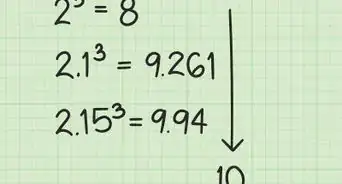 2³ = 8
2.1³ = 9.261
2.15³ = 9.94
10